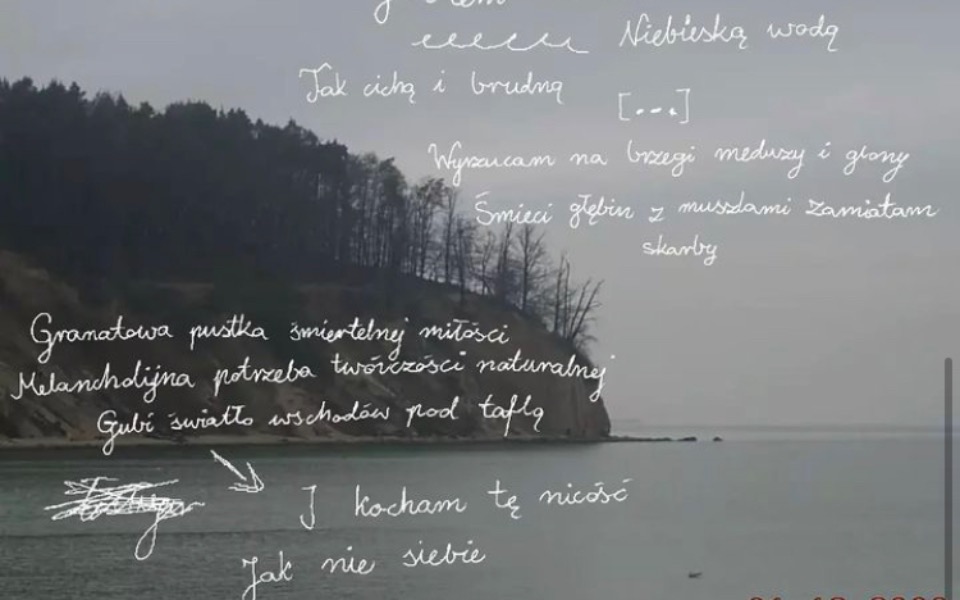 Niebieską wodą
Tak cichą i brudną
[...]
Wyrzucam na brzegi meduzy i glony
Śmieci głębin z muszlami zamiatam
skarby
Granatowa pustka śmiertelnej miłości
Melancholijna potrzeba twórczości naturalnej
Gubi światło wschodów pod taflą
I kocham tę nicość
Jak nie siebie